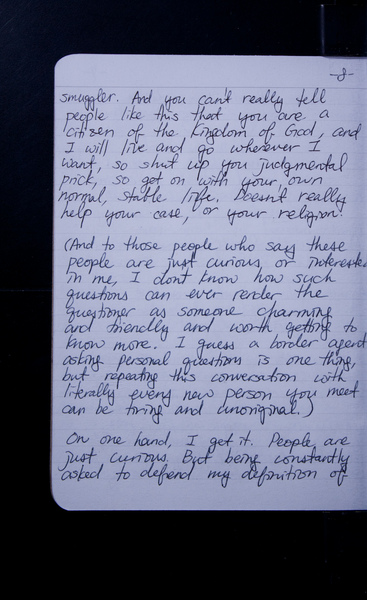 -8-
smuggler. And you can't really tell
people like this that you are a
citizen of the Kingdom of God, and
I will live and go wherever I
want, so shut up you judgmental
prick, so get on with your own
normal, stable life. Doesn't really
help your case, or your religion.
(And to those people who say these
people are just curious, or interested
in me, I don't know how such
questions can ever render the
questioner as someone charming
and friendly and worth getting to
know more. I guess a border agent
asking personal questions is one thing,
but repeating this conversation with
literally every new person you meet
can be tiring and unoriginal.)
On one hand, I get it. People are
just curious. But being constantly
asked to defend my definition of